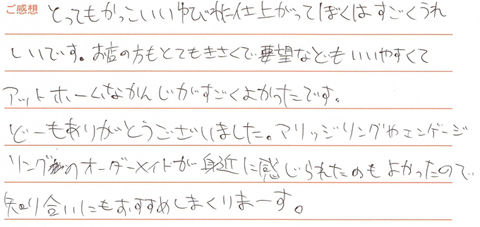 ご感想
とってもかっこいいゆびわに仕上がってぼくはすごくうれ
しいです。お店の方もとてもきさくで要望などもいいやすくて
アットホームなかんじがすごくよかったです。
どーもありがとうございました。マリッジリングやエンゲージ
リングのオーダーメイドが身近に感じられたのもよかったので
知り合いにもおすすめしまくりまーす。